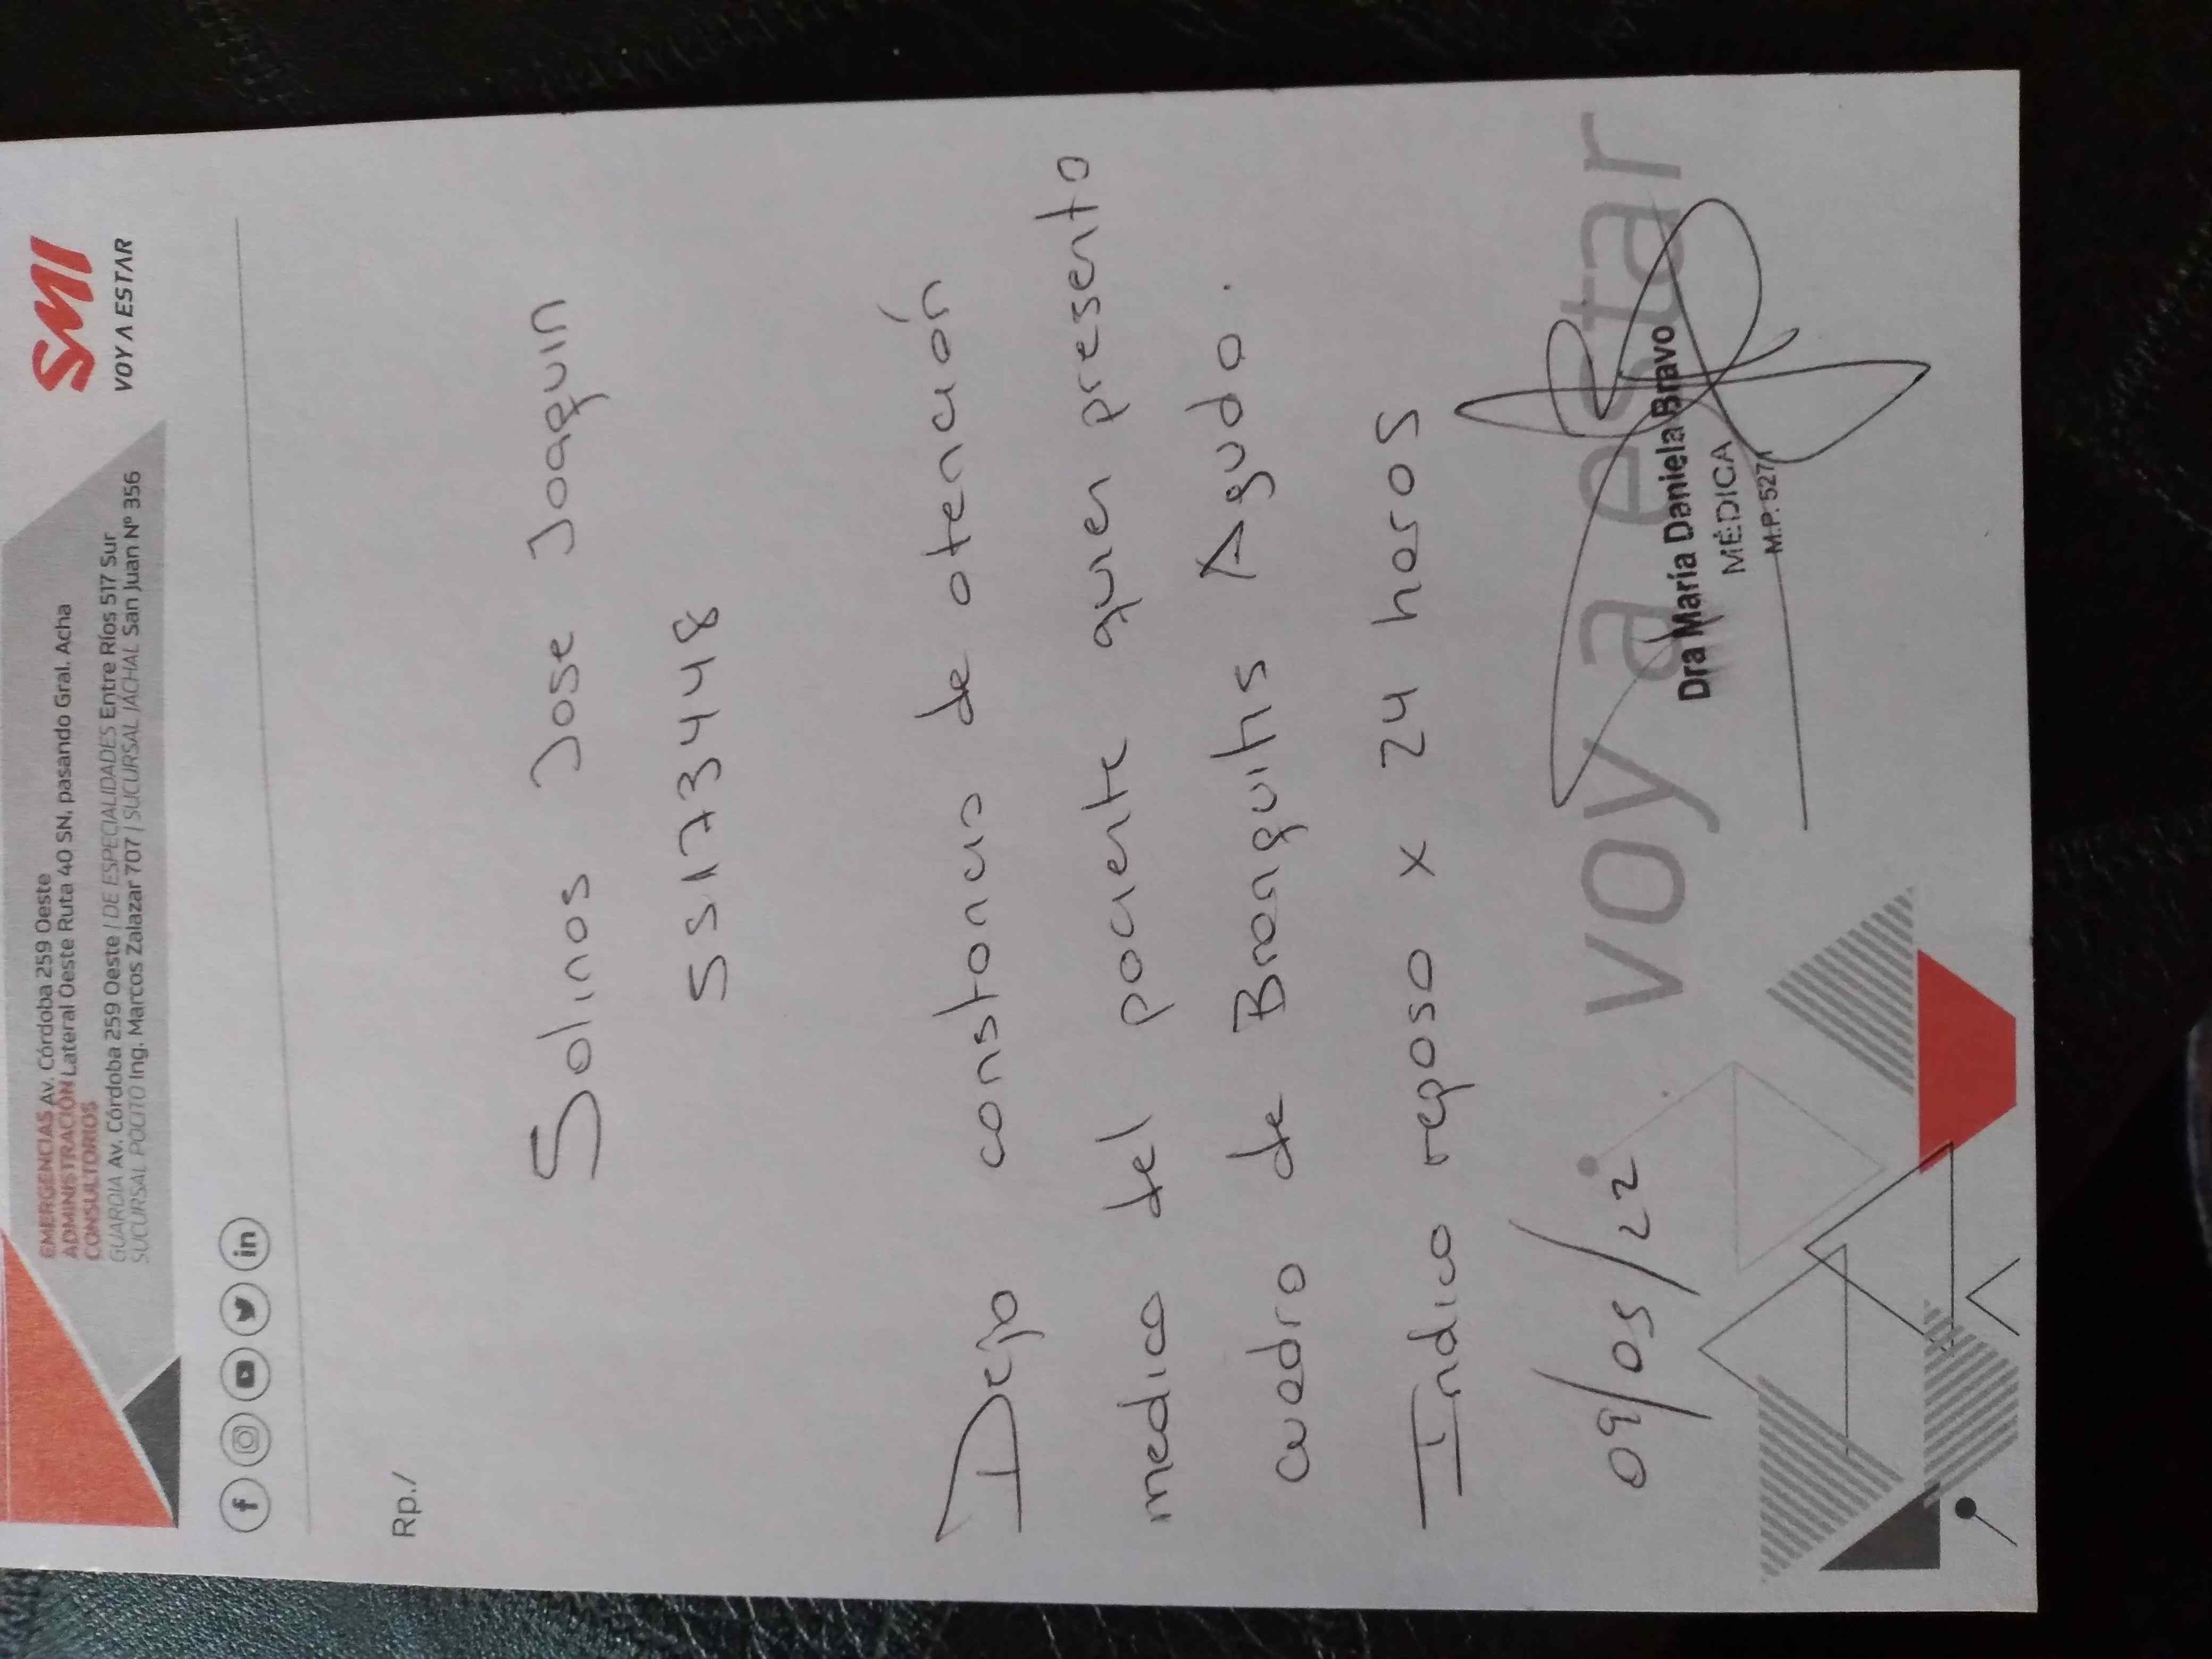 EMERGENCIAS Av. Córdoba 259 Oeste
ADMINISTRACIÓN Lateral Oeste Ruta 40 SN, pasando Gral. Acha
CONSULTORIOS
GUARDIA Av. Córdoba 259 Oeste | DE ESPECIALIDADES Entre Ríos 517 Sur
SUCURSAL POCITO Ing. Marcos Zalazar 707 | SUCURSAL JÁCHAL San Juan Nº 356
SMI
VOY A ESTAR
Rp./
Salinas Jose Joaquin
55173448
Dejo constancia de atención
medica del paciente quien presento
cuadro de Bronquitis Aguda.
Indico reposo x 24 horas
09/05/22
voy a estar
Dra María Daniela Bravo
MÉDICA
M.P. 5271